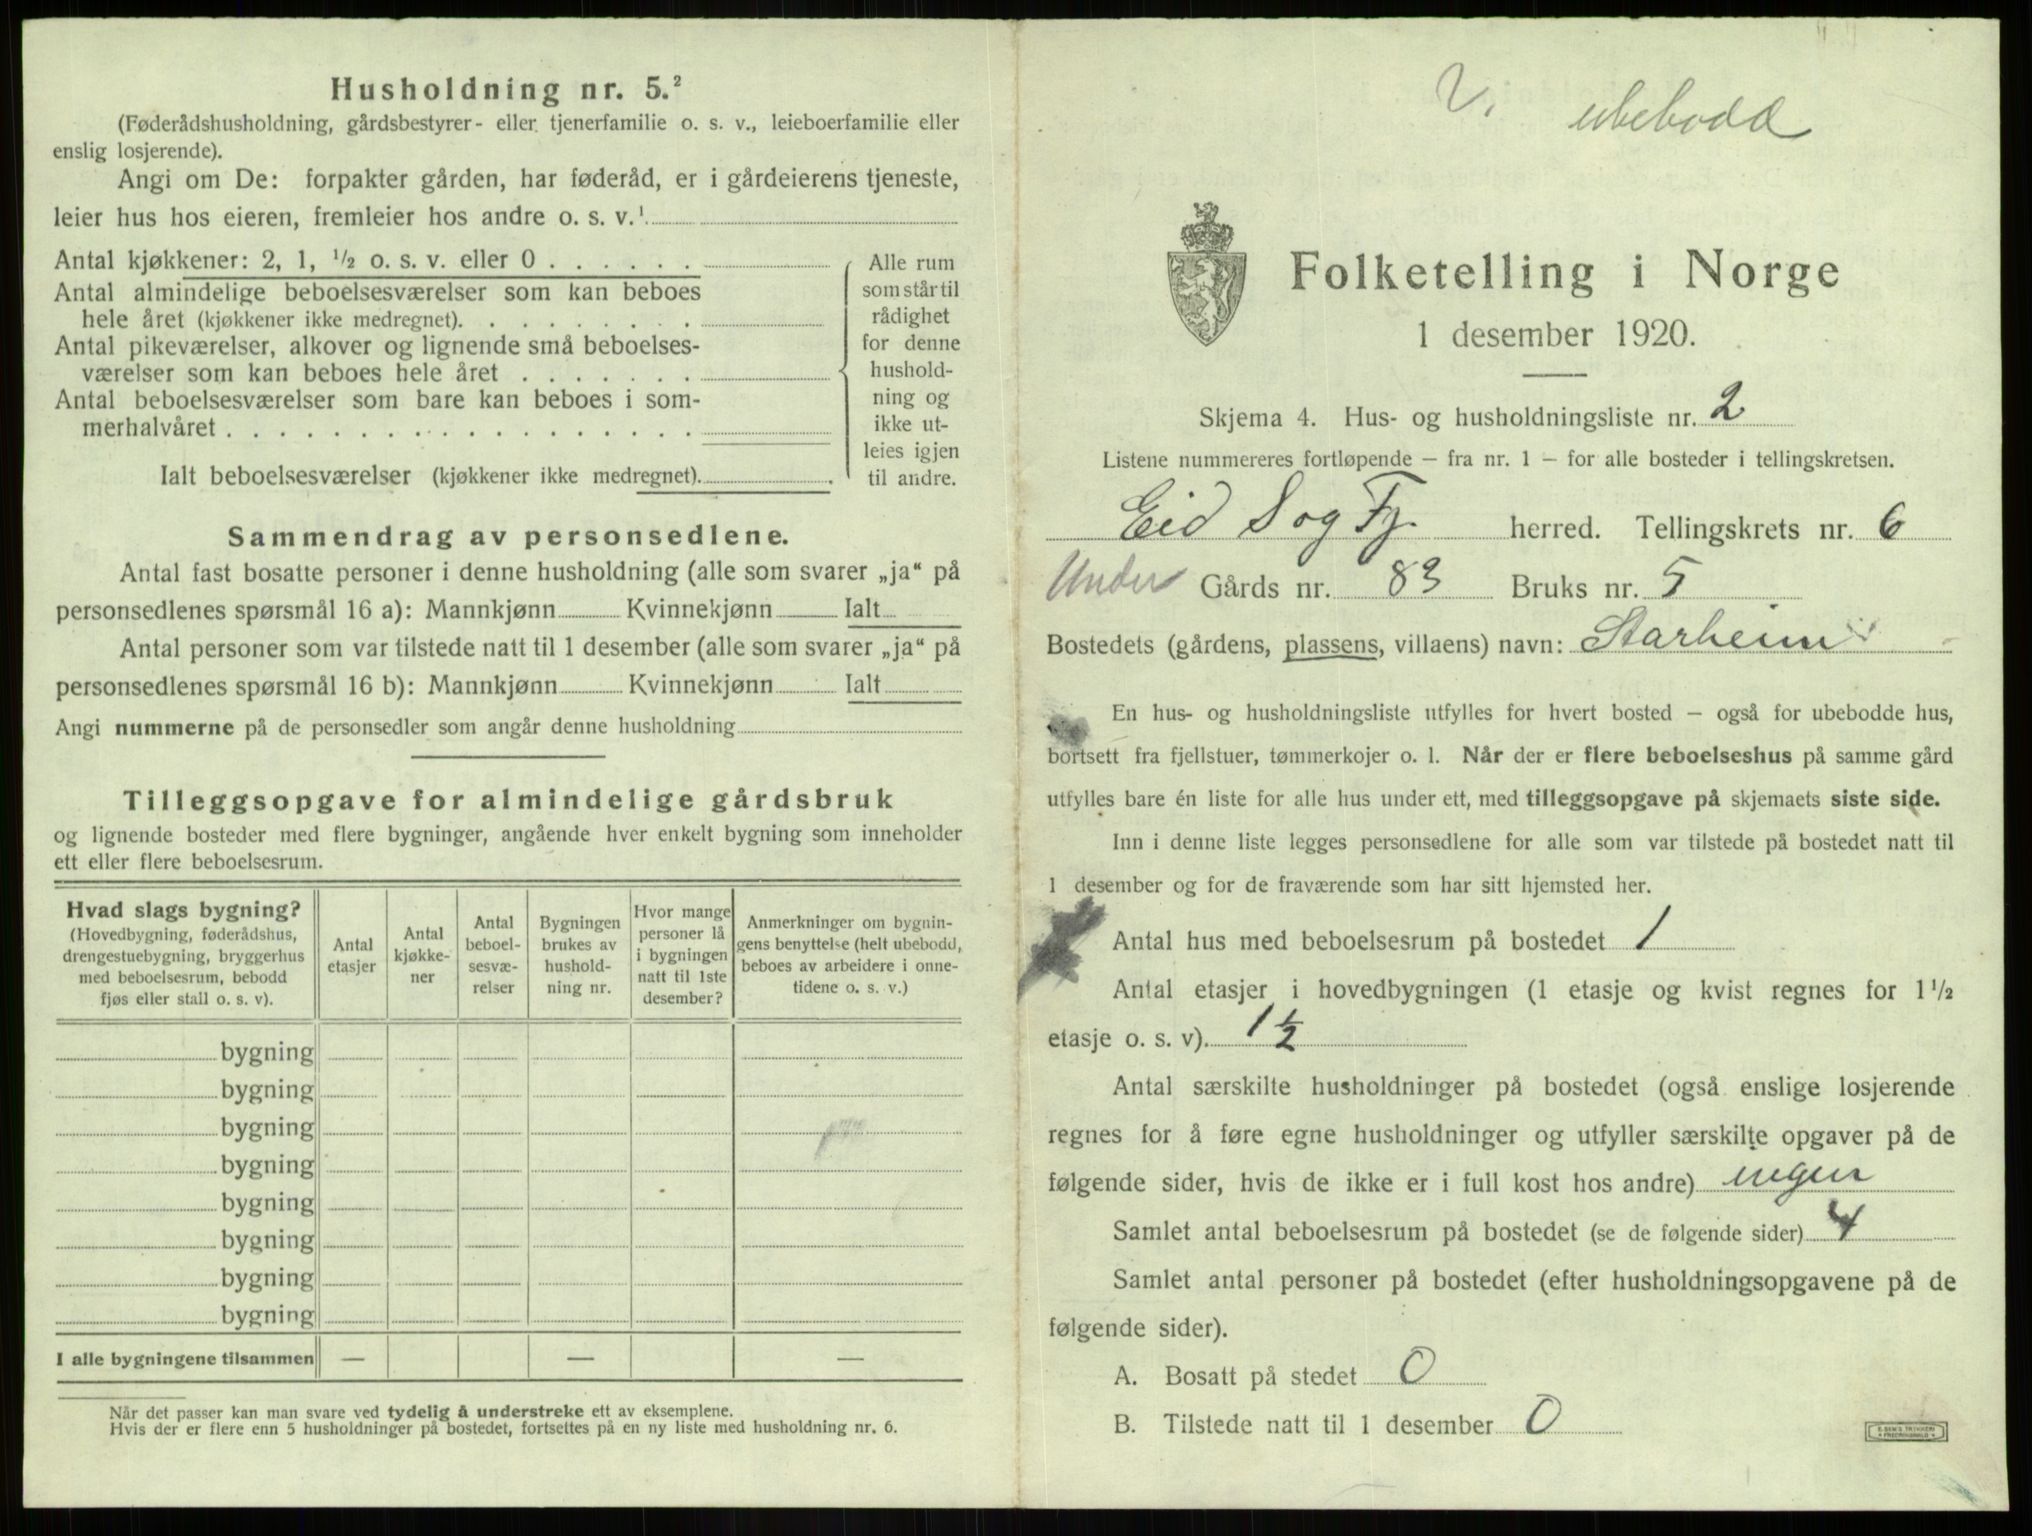 Husholdning nr. 5.²
(Føderådshusholdning, gårdsbestyrer- eller tjenerfamilie o. s. v., leieboerfamilie eller
enslig losjerende).
Angi om De: forpakter gården, har føderåd, er i gårdeierens tjeneste,
leier hus hos eieren, fremleier hos andre o. s. v.¹
Antal kjøkkener: 2, 1, ½ o. s. v. eller 0 . . . . . .
Antal almindelige beboelsesværelser som kan beboes
hele året (kjøkkener ikke medregnet). . . . . . . . .
Antal pikeværelser, alkover og lignende små beboelses-
værelser som kan beboes hele året . . . . . . .
Antal beboelsesværelser som bare kan beboes i som-
merhalvåret . . . . . . . . . . . . . . . . . .
Ialt beboelsesværelser (kjøkkener ikke medregnet).
Alle rum
som står til
rådighet
for denne
hushold-
ning og
ikke ut-
leies igjen
til andre.
Sammendrag av personsedlene.
Antal fast bosatte personer i denne husholdning (alle som svarer „ja“ på
personsedlenes spørsmål 16 a): Mannkjønn Kvinnekjønn Ialt
Antal personer som var tilstede natt til 1 desember (alle som svarer „ja“ på
personsedlenes spørsmål 16 b): Mannkjønn Kvinnekjønn Ialt
Angi nummerne på de personsedler som angår denne husholdning
Tilleggsopgave for almindelige gårdsbruk
og lignende bosteder med flere bygninger, angående hver enkelt bygning som inneholder
ett eller flere beboelsesrum.
Hvad slags bygning?
(Hovedbygning, føderådshus,
drengestuebygning, bryggerhus
med beboelsesrum, bebodd
fjøs eller stall o. s. v).
Antal
etasjer
Antal
kjøkke-
ner
Antal
beboel-
sesvæ-
relser
Bygningen
brukes av
hushold-
ning nr.
Hvor mange
personer lå
i bygningen
natt til 1ste
desember?
Anmerkninger om bygnin-
gens benyttelse (helt ubebodd,
beboes av arbeidere i onne-
tidene o. s. v.)
bygning
bygning
bygning
bygning
bygning
bygning
bygning
bygning
I alle bygningene tilsammen — — —
Når det passer kan man svare ved tydelig å understreke ett av eksemplene.
Hvis der er flere enn 5 husholdninger på bostedet, fortsettes på en ny liste med husholdning nr. 6.
V. ubebodd
Folketelling i Norge
1 desember 1920.
Skjema 4. Hus- og husholdningsliste nr. 2
Listene nummereres fortløpende — fra nr. 1 — for alle bosteder i tellingskretsen.
Eid Sog Fj. herred. Tellingskrets nr. 6
Under Gårds nr. 83 Bruks nr. 5
Bostedets (gårdens, plassens, villaens) navn: Starheim
En hus- og husholdningsliste utfylles for hvert bosted — også for ubebodde hus,
bortsett fra fjellstuer, tømmerkojer o. l. Når der er flere beboelseshus på samme gård
utfylles bare én liste for alle hus under ett, med tilleggsopgave på skjemaets siste side.
Inn i denne liste legges personsedlene for alle som var tilstede på bostedet natt til
1 desember og for de fraværende som har sitt hjemsted her.
Antal hus med beboelsesrum på bostedet 1
Antal etasjer i hovedbygningen (1 etasje og kvist regnes for 1½
etasje o. s. v). 1½
Antal særskilte husholdninger på bostedet (også enslige losjerende
regnes for å føre egne husholdninger og utfyller særskilte opgaver på de
følgende sider, hvis de ikke er i full kost hos andre) ingen
Samlet antal beboelsesrum på bostedet (se de følgende sider) 4
Samlet antal personer på bostedet (efter husholdningsopgavene på de
følgende sider).
A. Bosatt på stedet 0
B. Tilstede natt til 1 desember 0